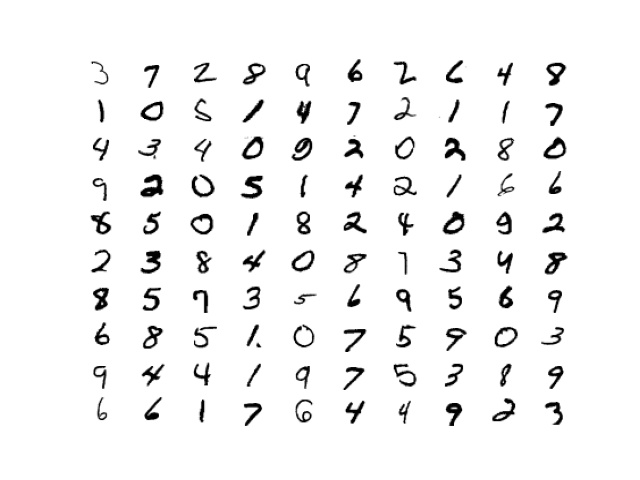 3 7 2 8 9 6 2 6 4 8
1 0 5 1 4 7 2 1 1 7
4 3 4 0 9 2 0 2 8 0
9 2 0 5 1 4 2 1 6 6
8 5 0 1 8 2 4 0 9 2
2 3 8 4 0 8 7 3 4 8
8 5 7 3 5 6 9 5 6 9
6 8 5 1. 0 7 5 9 0 3
9 4 4 1 9 7 5 3 8 9
6 6 1 7 6 4 4 9 2 3